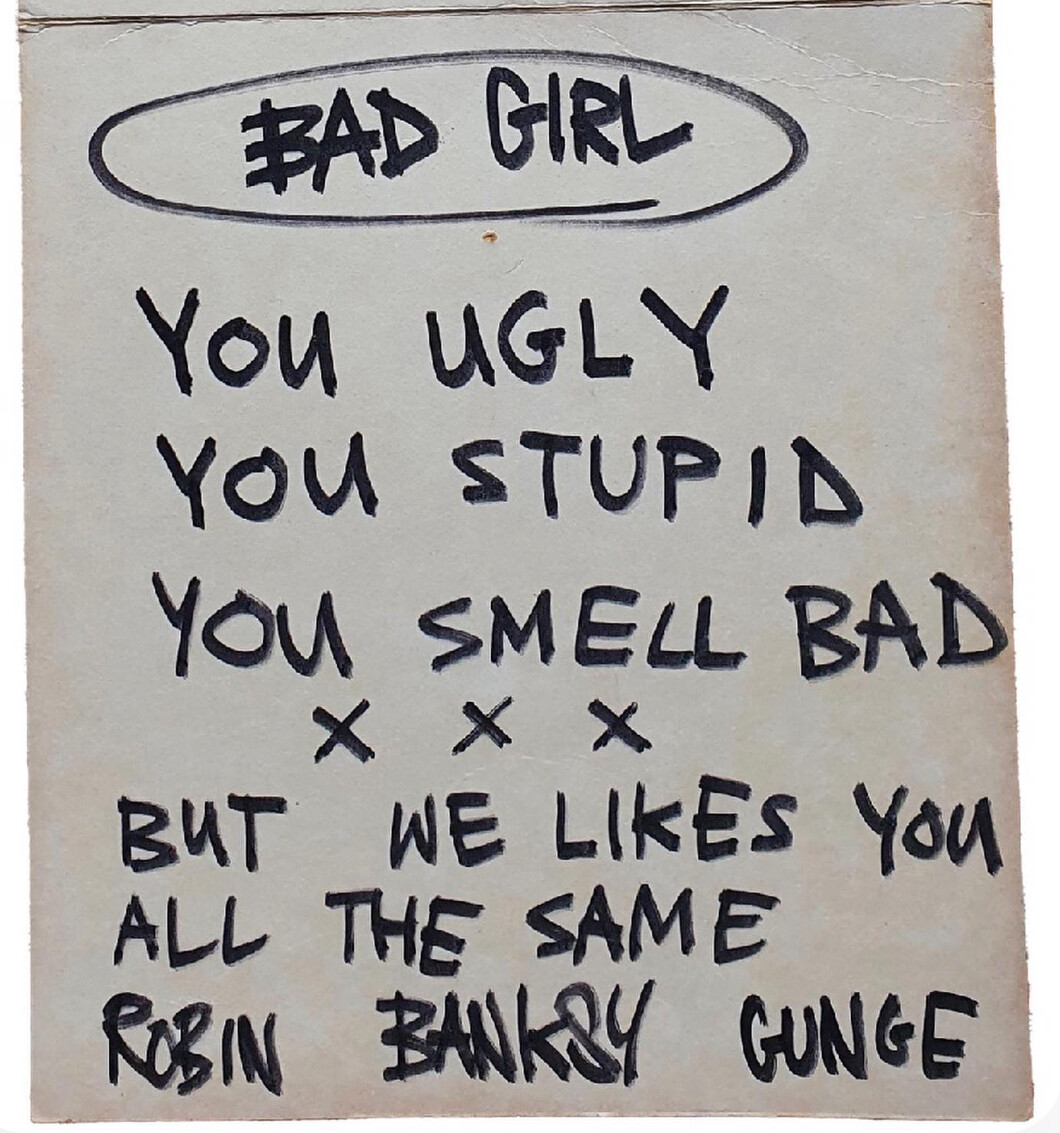 BAD GIRL
YOU UGLY
YOU STUPID
YOU SMELL BAD
x x x
BUT WE LIKES YOU
ALL THE SAME
ROBIN BANKSY GUNGE